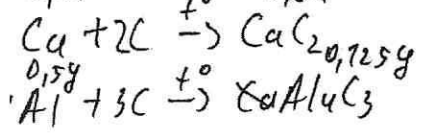 Ca + 2C t° → CaC₂
0,5y 0,125y
Al + 3C t° → Al₄C₃